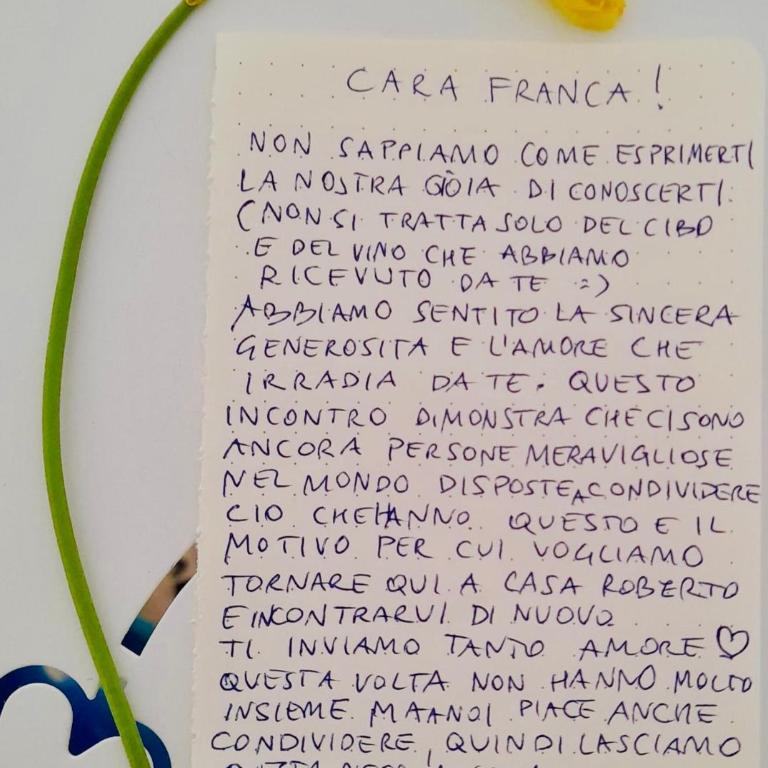 CARA FRANCA!
NON SAPPIAMO COME ESPRIMERTI
LA NOSTRA GIOIA DI CONOSCERTI.
(NON SI TRATTA SOLO DEL CIBO
E DEL VINO CHE ABBIAMO
RICEVUTO DA TE :)
ABBIAMO SENTITO LA SINCERA
GENEROSITA E L'AMORE CHE
IRRADIA DA TE. QUESTO
INCONTRO DIMONSTRA CHE CI SONO
ANCORA PERSONE MERAVIGLIOSE
NEL MONDO DISPOSTE A CONDIVIDERE
CIO CHE HANNO. QUESTO E IL
MOTIVO PER CUI VOGLIAMO
TORNARE QUI A CASA ROBERTO
E INCONTRARVI DI NUOVO
TI INVIAMO TANTO AMORE ♡
QUESTA VOLTA NON HANNO MOLTO
INSIEME MA A NOI PIACE ANCHE
CONDIVIDERE, QUINDI LASCIAMO